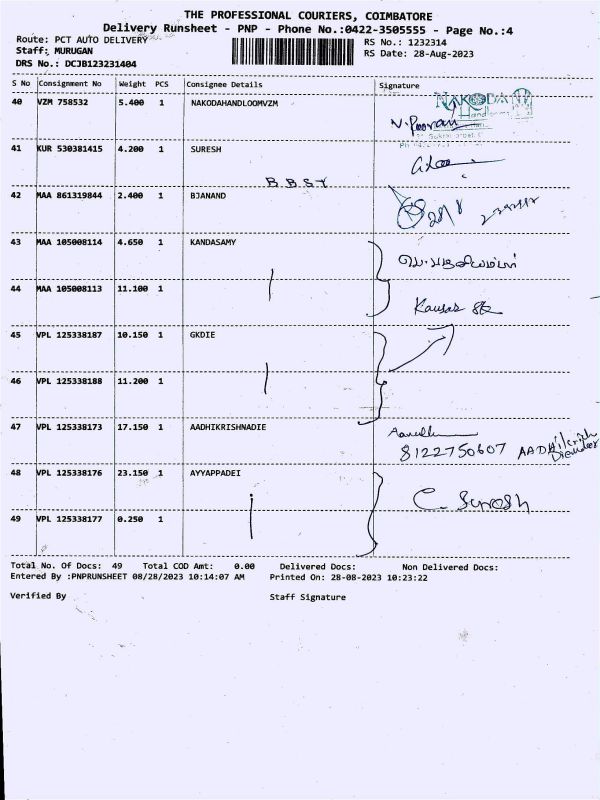 THE PROFESSIONAL COURIERS, COIMBATORE
Delivery Runsheet - PNP - Phone No.:0422-3505555 - Page No.:4
Route: PCT AUTO DELIVERY
RS No.: 1232314
Staff: MURUGAN
RS Date: 28-Aug-2023
DRS No.: DCJB123231404
S No Consignment No Weight PCS Consignee Details Signature
40 VZM 758532 5.400 1 NAKODAHANDLOOMVZM
NAKODA
N. Pooram
41 KUR 530381415 4.200 1 SURESH
B.B.S.T
42 MAA 861319844 2.400 1 BJANAND
28/8
43 MAA 105008114 4.650 1 KANDASAMY
44 MAA 105008113 11.100 1
Kausar SK
45 VPL 125338187 10.150 1 GKDIE
46 VPL 125338188 11.200 1
47 VPL 125338173 17.150 1 AADHIKRISHNADIE
8122750607
48 VPL 125338176 23.150 1 AYYAPPADEI
C. Suresh
49 VPL 125338177 0.250 1
Total No. Of Docs: 49 Total COD Amt: 0.00 Delivered Docs: Non Delivered Docs:
Entered By :PNPRUNSHEET 08/28/2023 10:14:07 AM Printed On: 28-08-2023 10:23:22
Verified By Staff Signature